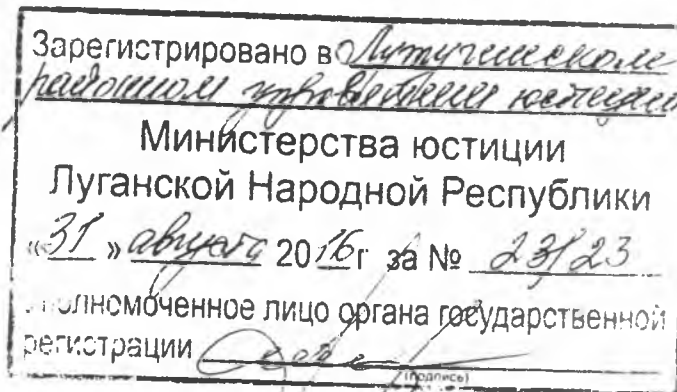 Зарегистрировано в Лутугинском
районном управлении юстиции
Министерства юстиции
Луганской Народной Республики
«31» августа 2016г за № 23/23
уполномоченное лицо органа государственной
регистрации
(подпись)